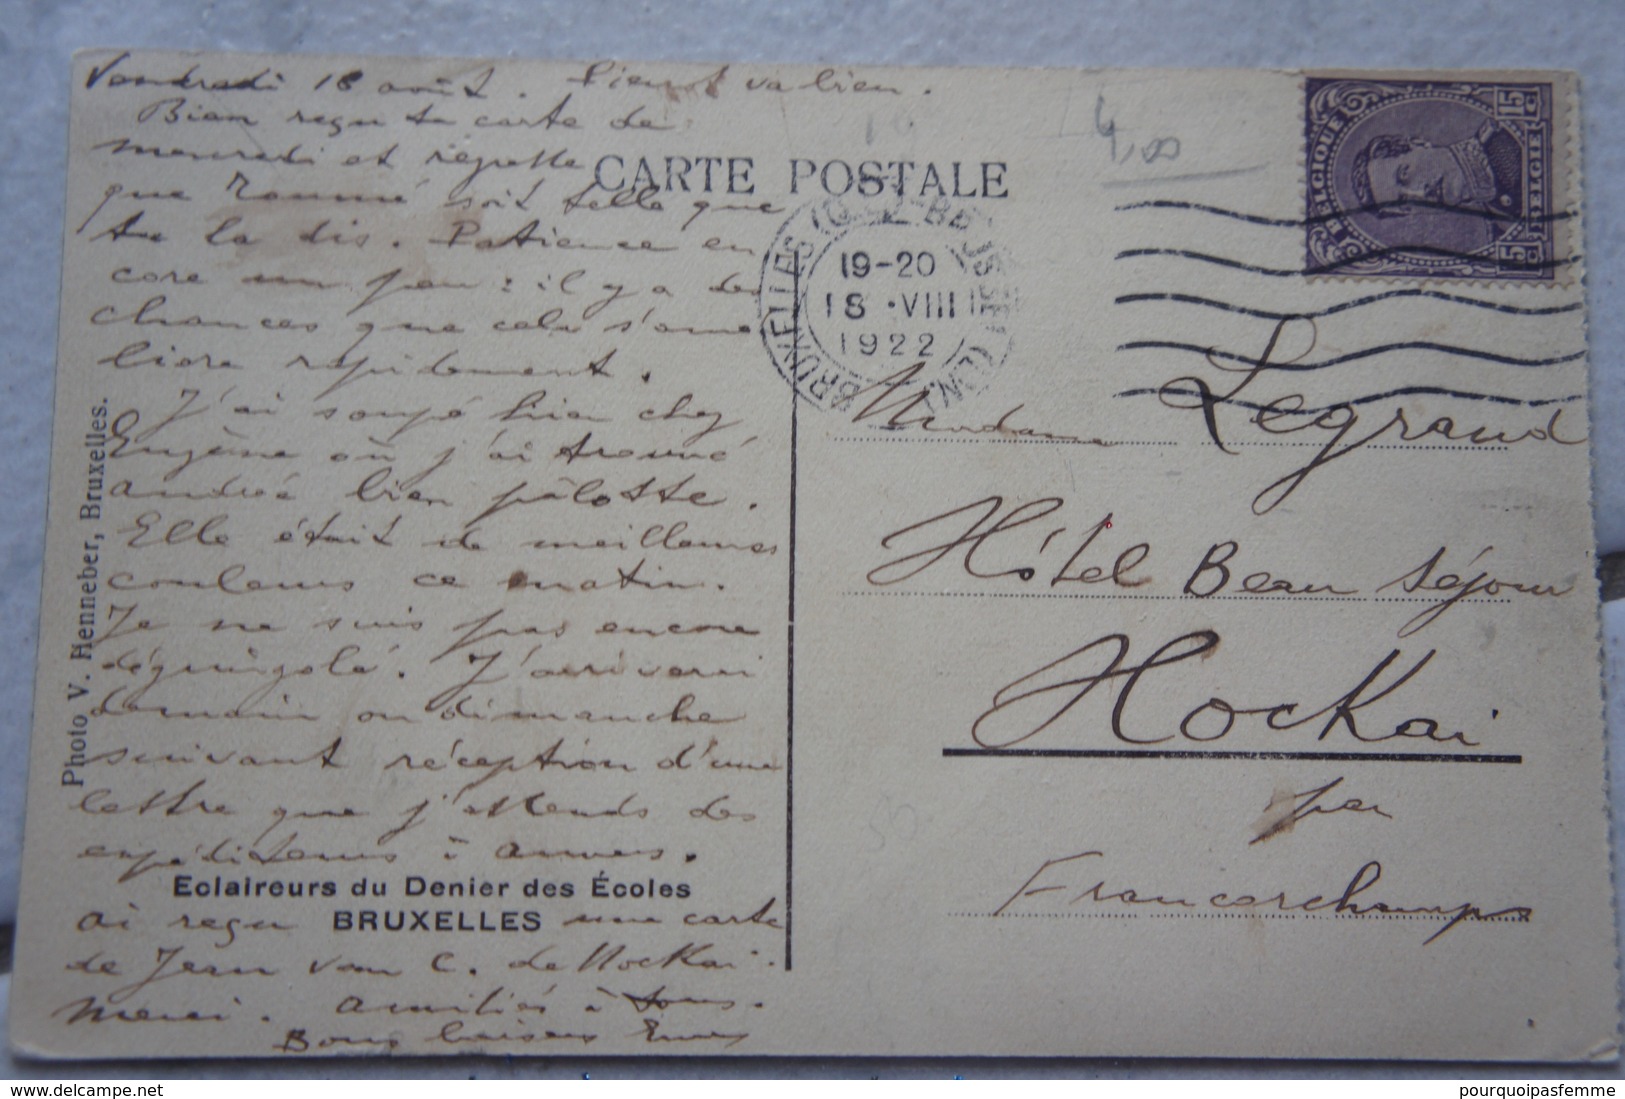 Vendredi 18 août. Pierrot va bien.
Bien reçu ta carte de
mercredi et regrette
que soit telle que
tu la dis. Patience en
core un peu : il y a des
chances que cela s'amé
liore rapidement.
J'ai soupé hier chez
Eugène où j'ai trouvé
Andrée bien pâlotte.
Elle était de meilleures
couleurs ce matin.
Je ne suis pas encore
déguingolé. J'arriverai
demain ou dimanche
suivant réception d'une
lettre que j'attends des
expéditeurs à Anvers.
Eclaireurs du Denier des Écoles
BRUXELLES
ai reçu une carte
de Jean van C. de Hockai.
Merci. Amitiés à tous.
Bons baisers
Photo V. Henneber, Bruxelles.
CARTE POSTALE
4,00
BELGIQUE BELGIE
15 C 15 C
BRUXELLES
19-20
18 ·VIII
1922
BRUSSEL
Madame Legrand
Hôtel Beau séjour
Hockai
par
Francorchamps
www.delcampe.net
pourquoipasfemme